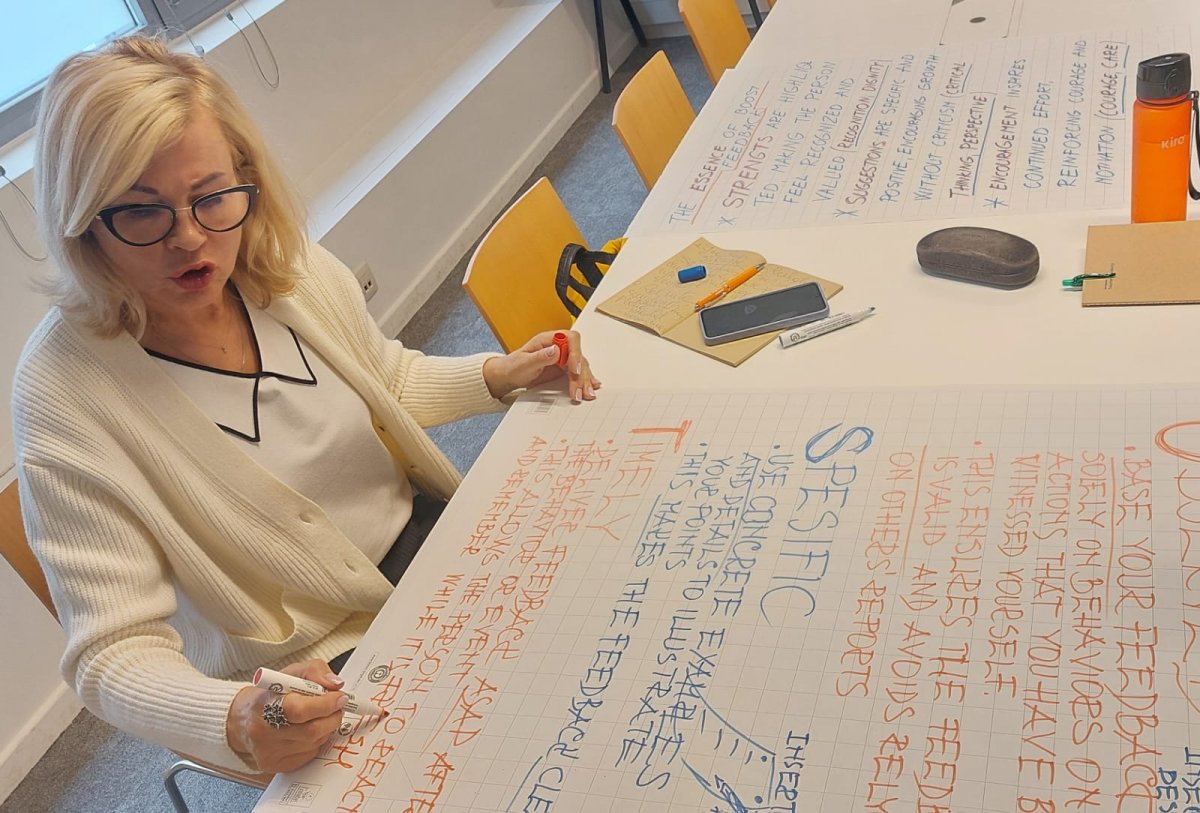 THE ESSENCE OF BOOST
FEEDBACK
* STRENGTS ARE HIGHLIG
TED MAKING THE PERSON
FEEL RECOGNIZED AND
VALUED (RECOGNITION DIGNITY)
* SUGGESTIONS ARE SPECIFIC AND
POSITIVE, ENCOURAGING GROWTH
WITHOUT CRITICISM (CRITICAL
THINKING PERSPECTIVE)
* ENCOURAGEMENT INSPIRES
CONTINUED EFFORT,
REINFORCING COURAGE AND
MOTIVATION (COURAGE, CARE)
• BASE YOUR FEEDBACK
SOLELY ON BEHAVIORS OR
ACTIONS THAT YOU HAVE
WITNESSED YOURSELF.
• THIS ENSURES THE
IS VALID AND AVOIDS RELY
ON OTHERS' REPORTS
SPESIFIC
• USE CONCRETE EXAMPLES
AND DETAILS TO ILLUSTRATE
YOUR POINTS
• THIS MAKES THE FEEDBACK
INSERT
TIMELY
• DELIVER FEEDBACK ASAP AFTER
THE BEHAVIOR OR EVENT
• THIS ALLOWS THE PERSON TO
AND REMEMBER WHILE IT IS